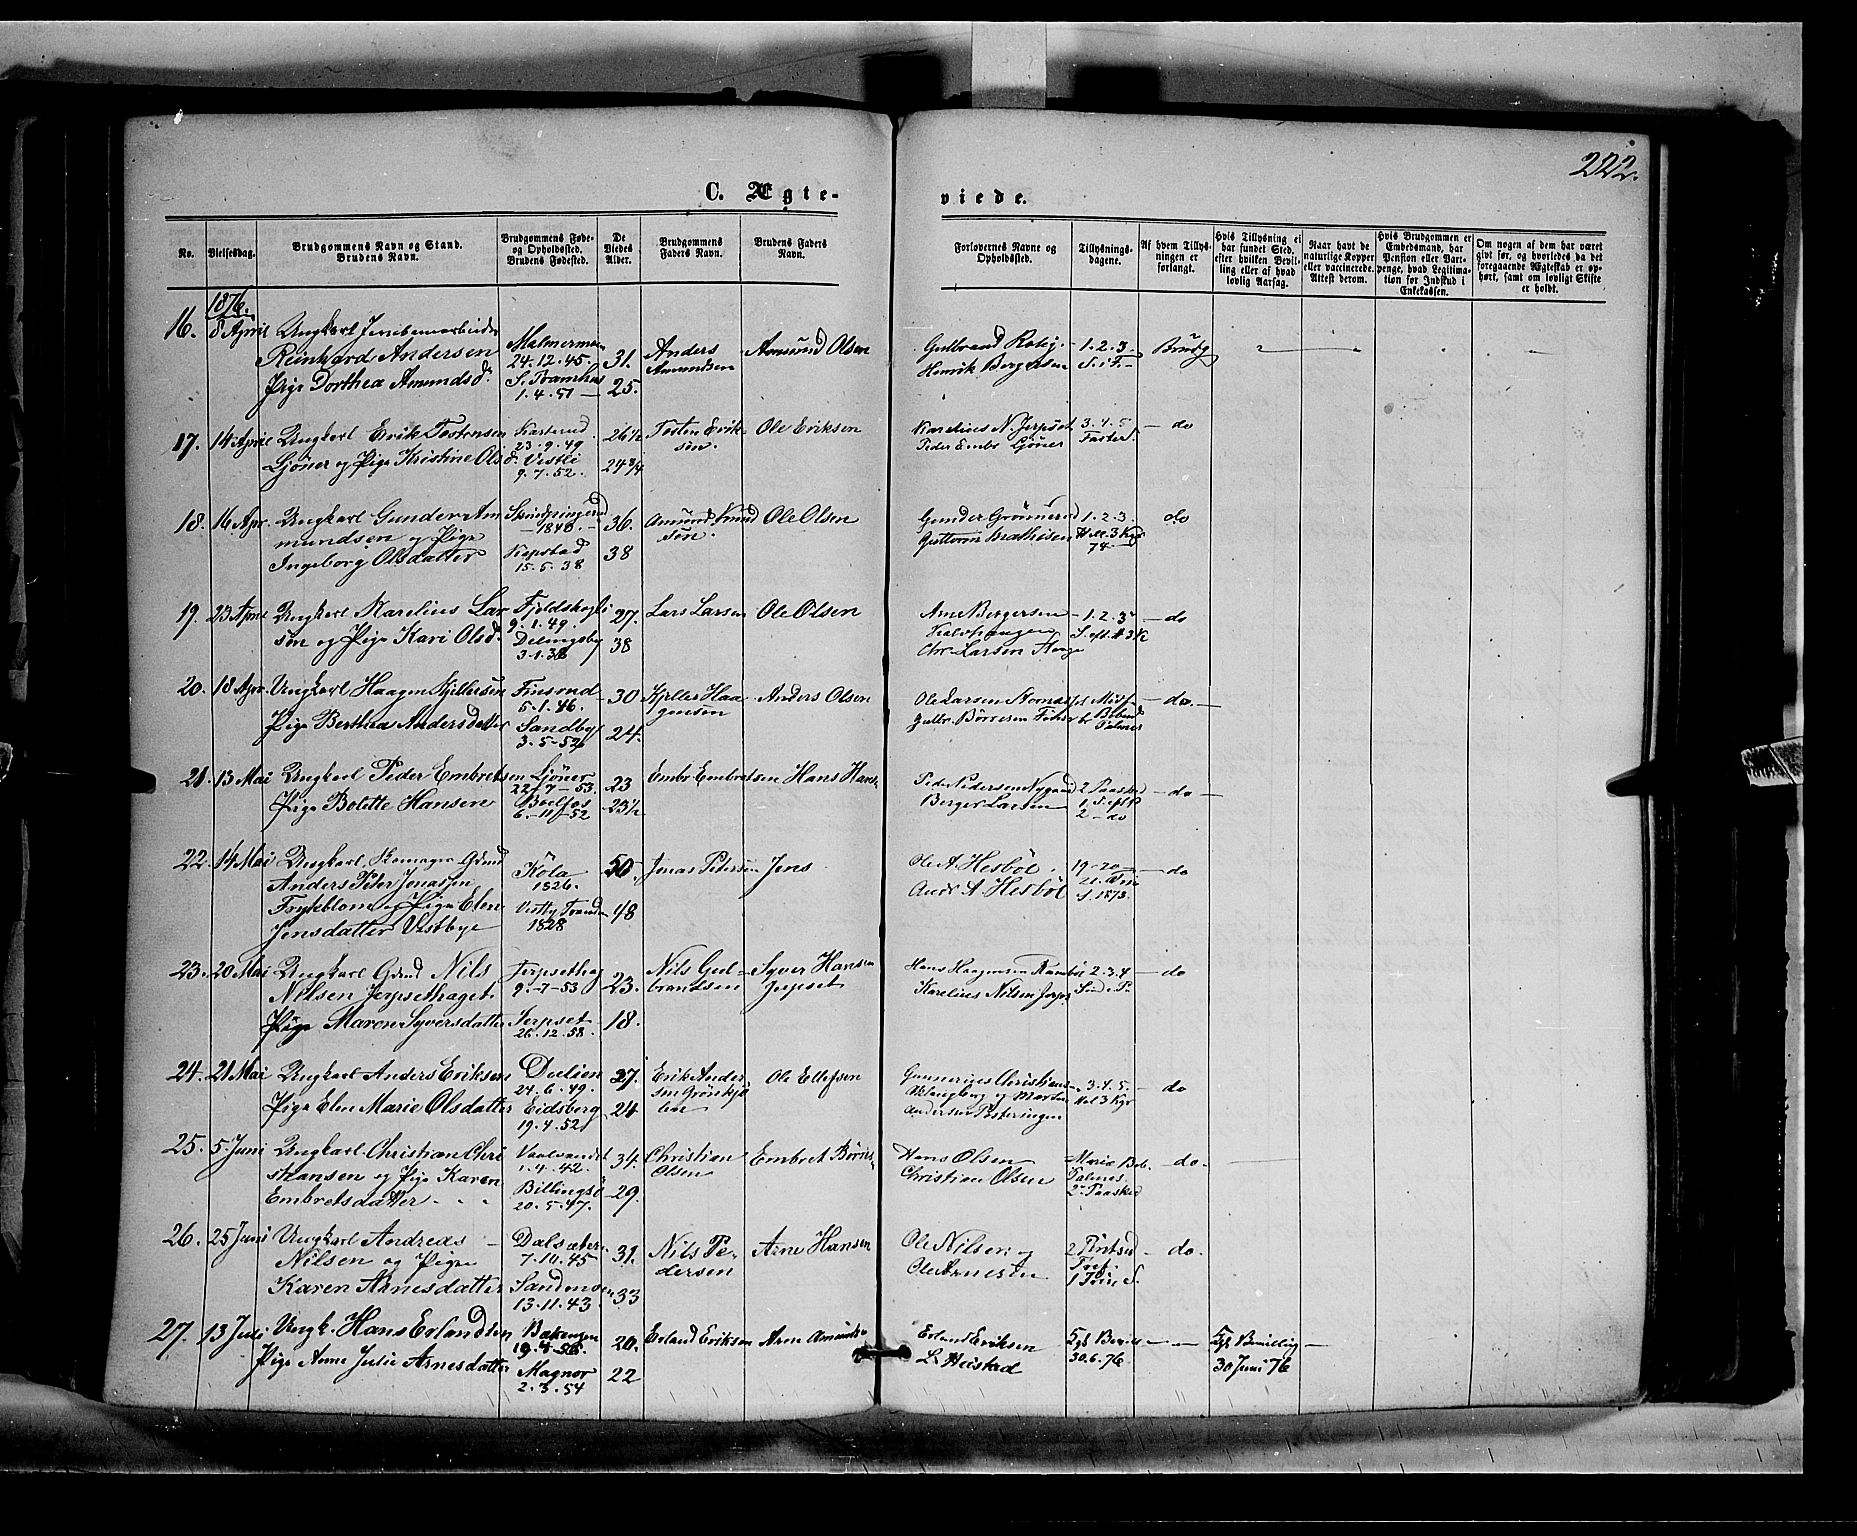 222.
C. Ægte-
viede.
No.
Vielsesdag.
Brudgommens Navn og Stand.
Brudens Navn.
Brudgommens Føde-
og Opholdssted.
Brudens Fødested.
De
Viedes
Alder.
Brudgommens
Faders Navn.
Brudens Faders
Navn.
Forlovernes Navne og
Opholdssted.
Tillysnings-
dagene.
Af hvem Tillys-
ningen er
forlangt.
Hvis Tillysning ei
har fundet Sted,
efter hvilken Bevil-
ling eller af hvad
lovlig Aarsag.
Naar havt de
naturlige Kopper
eller vaccinerede.
Attest derom.
Hvis Brudgommen er
Embedsmand, har
Pension eller Vart-
penge, hvad Legitima-
tion for Indskud i
Enkekassen.
Om nogen af dem har været
gift før, og hvorledes da det
foregaaende Ægteskab er op-
hørt, samt om lovligt Skifte
er holdt.
1876.
16. 8 April Ungkarl Jernbanearbeider
Reinhard Andersen
Pige Dorthea Amundsd.
24.12.45.
1.4.51
31.
25.
Anders
Amundsen
Amund Olsen
Gulbrand
Henrik Bergersen
1.2.3
Brudg
17. 14 April Ungkarl Erik Tostensen
Ljöner og Pige Kristine Olsd.
Kasterud
23.9.49
Vestli
9.7.52.
26½
24¾
Tosten Erik-
sen.
Ole Eriksen
Karelius N. Jerpset
Peder Embr Ljöner
3.4.5
Faster
do
18. 16 Apr. Ungkarl Gunder Am
mundsen og Pige
Ingeborg Olsdatter
1840.
Kopstad
15.5.38
36.
38
Amund Knud
sen.
Ole Olsen
Gunder Grönnerud
Guttorm Mathisen
1.2.3.
do
19. 23 April Ungkarl Marelius Lar
sen og Pige Kari Olsd.
9.1.49.
3.1.38
27.
38
Lars Larsen
Ole Olsen
Arne Bergersen
Chr. Larsen
1.2.3
do
20. 18 Apr. Ungkarl Haagen Kjillersen
Pige Berthea Andersdatter
Finsrud
5.1.46.
Sandbye
3.5-52
30
24.
Kjeller Haa
gensen
Anders Olsen
Ole Larsen
Gulbr. Börresen
do
21. 13 Mai Ungkarl Peder Embretsen
Pige Bolette Hansen
Ljöner
22/7-53.
6.-11-52
23
23½
Embr Embretsen
Hans Hans.
Peder Pedersen Nygaard
Berger Larsen
2 Paasked
2 - do
do
22. 14 Mai Ungkarl, Skomager Grmd
Anders Peter Jonassen
Frykblom og Pige Elen
Jensdatter Vestbye
Köla
1826.
1828
50
48
Jonas Petersen
Jens
Ole A. Hesböl
A. Hesböl
19-20
1873.
do
23. 20 Mai Ungkarl Grmd Nils
Nilsen Jerpsethaget
Pige Maren Syversdatter
Jerpsethag
9.-7-53
Jerpset
26.12.58.
23.
18.
Nils Gul-
brandsen
Syver Hansen
Jerpset
Hans Haagensen
Karelius Nilsen Jerps
2.3.4
do
24. 21 Mai Ungkarl Anders Eriksen
Pige Elen Marie Olsdatter
Dulien
24.6.49.
Eidsberg
19.4.52
27.
24
Erik Ander
sen
Ole Ellefsen
og Morten
Andersen
3.4.5.
do
25. 5 Juni Ungkarl Christian Chri
stiansen og Pige Karen
Embretsdatter
1.4.42.
20.5.47.
34.
29.
Christian
Olsen
Embret Börres
Hans Olsen
Christian Olsen
2 Paasked
do.
26. 25 Juni Ungkarl Andreas
Nilsen og Pige
Karen Arnesdatter
Dalsæter
7.10.45
Sandmoen
13.11.43.
31.
33
Nils Pe-
dersen
Arne Hansen
Ole Nilsen og
Ole Arnesen
do.
27. 13 Juli Ungk. Hans Erlandsen
Pige Anne Julie Arnesdatter
19.4.56.
Magnor
2.3.54
20.
22
Erland Eriksen
Arne Amunds.
Erland Eriksen
L. Heistad
30.6.76
Bevilling
30 Juni 76